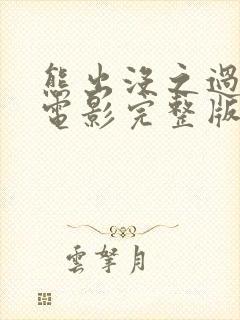 熊出没之過
電影完整版
雲拏月